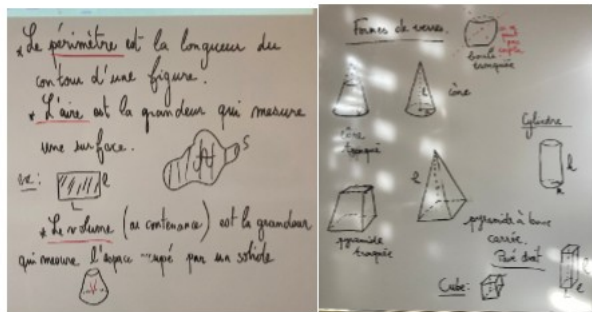 * Le périmètre est la longueur du
contour d'une figure.
* L'aire est la grandeur qui mesure
une surface.
ex:
l
L
S
* Le volume (ou contenance) est la grandeur
qui mesure l'espace occupé par un solide
V
Formes de verres.
boule
tronquée
cône
cône
tronqué
Cylindre
h
pyramide
tronquée
l
pyramide à base
carrée.
Pavé droit
Cube:
l
L